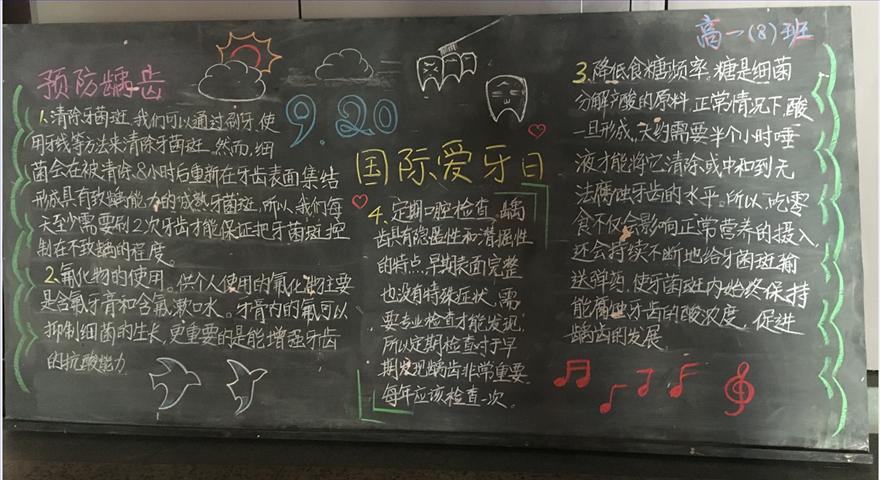 高一(8)班
预防龋齿
9.20
国际爱牙日
1.清除牙菌斑.我们可以通过刷牙,使
用牙线等方法来清除牙菌斑.然而,细
菌会在被清除8小时后重新在牙齿表面集结
形成具有致龋能力的成熟牙菌斑,所以,我们每
天至少需要刷2次牙齿才能保证把牙菌斑控
制在不致龋的程度。
2.氟化物的使用。供个人使用的氟化物主要
是含氟牙膏和含氟漱口水。牙膏内的氟可以
抑制细菌的生长,更重要的是能增强牙齿
的抗酸能力
4.定期口腔检查.龋
齿具有隐匿性和潜掘性
的特点.早期表面完整
也没有特殊症状,需
要专业检查才能发现,
所以定期检查对于早
期发现龋齿非常重要.
每年应该检查一次。
3.降低食糖频率.糖是细菌
分解产酸的原料,正常情况下,酸
一旦形成,大约需要半个小时唾
液才能将它清除或中和到无
法腐蚀牙齿的水平。所以,吃零
食不仅会影响正常营养的摄入,
还会持续不断地给牙菌斑输
送弹药,使牙菌斑内始终保持
能腐蚀牙齿的酸浓度,促进
龋齿的发展